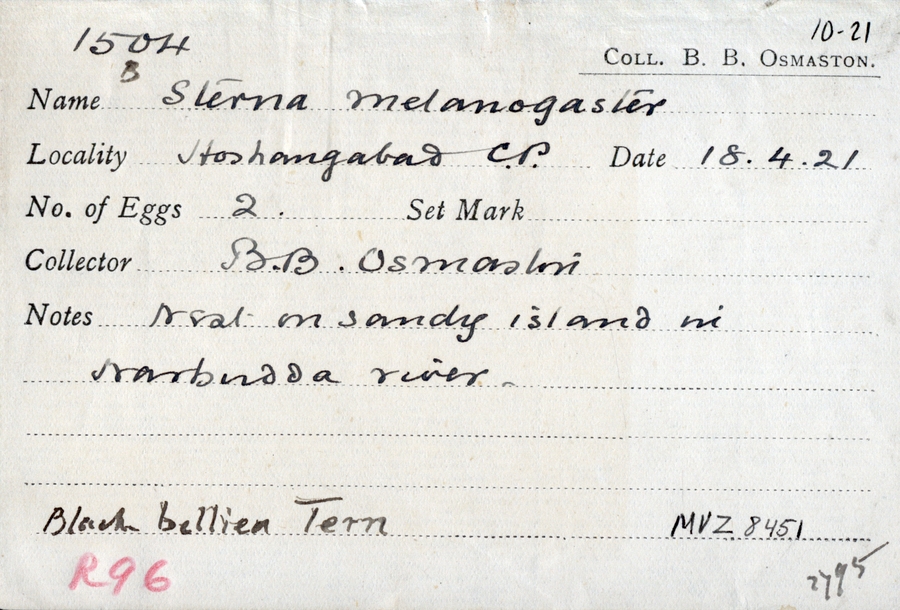 1504
10-21
B
COLL. B. B. OSMASTON.
Name Sterna melanogaster
Locality Hoshangabad C.P. Date 18.4.21
No. of Eggs 2. Set Mark
Collector B.B. Osmaston
Notes Nest on sandy island in
Narbudda river.
Black bellied Tern MVZ 8451
R96
2795